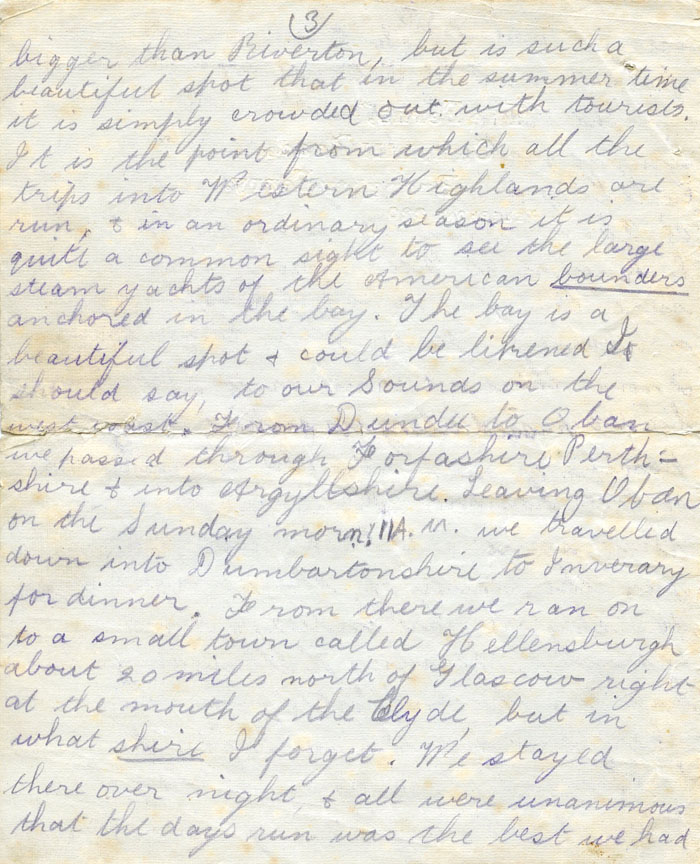 3
bigger than Riverton, but is such a
beautiful spot that in the summer time
it is simply crowded out with tourists.
It is the point from which all the
trips into Western Highlands are
run, & in an ordinary season it is
quite a common sight to see the large
steam yachts of the American bounders
anchored in the bay. The bay is a
beautiful spot & could be likened I
should say, to our Sounds on the
west coast. From Dundee to Oban
we passed through Forfashire, Perth-
shire & into Argyllshire. Leaving Oban
on the Sunday morn: 11 A.M. we travelled
down into Dumbartonshire to Inverary
for dinner. From there we ran on
to a small town called Hellensburgh
about 20 miles north of Glascow right
at the mouth of the Clyde, but in
what shire I forget. We stayed
there over night, & all were unanimous
that the days run was the best we had